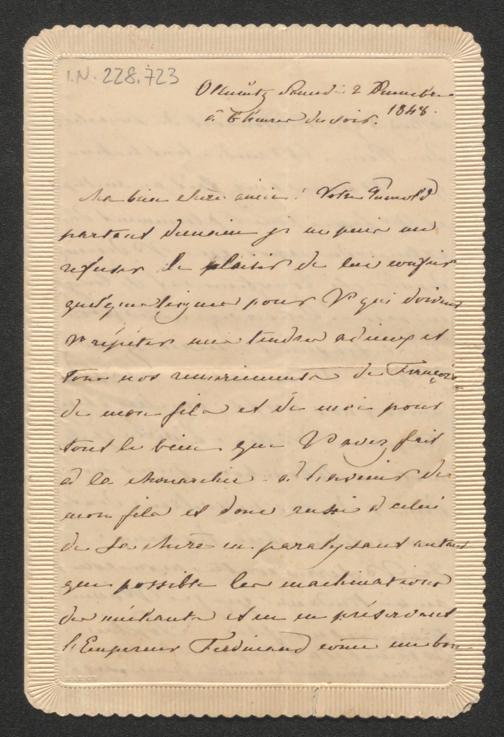 I.N. 228.723
Ollmütz Samedi 2 Decembre
à 6 heures du soir. 1848.
Ma bien chère amie! Votre
partant demain je ne puis me
refuser le plaisir de lui confier
quelques lignes pour V. qui doivent
V. répéter mes tendres adieux et
tous nos remerciments de François
de mon fils et de moi pour
tout le bien que V. avez fait
à la Monarchie à l'avenir de
mon fils et donc aussi à celui
de sa chère en paralysant autant
que possible les machinations
des méchants et en en préservant
l'Empereur Ferdinand come un bon